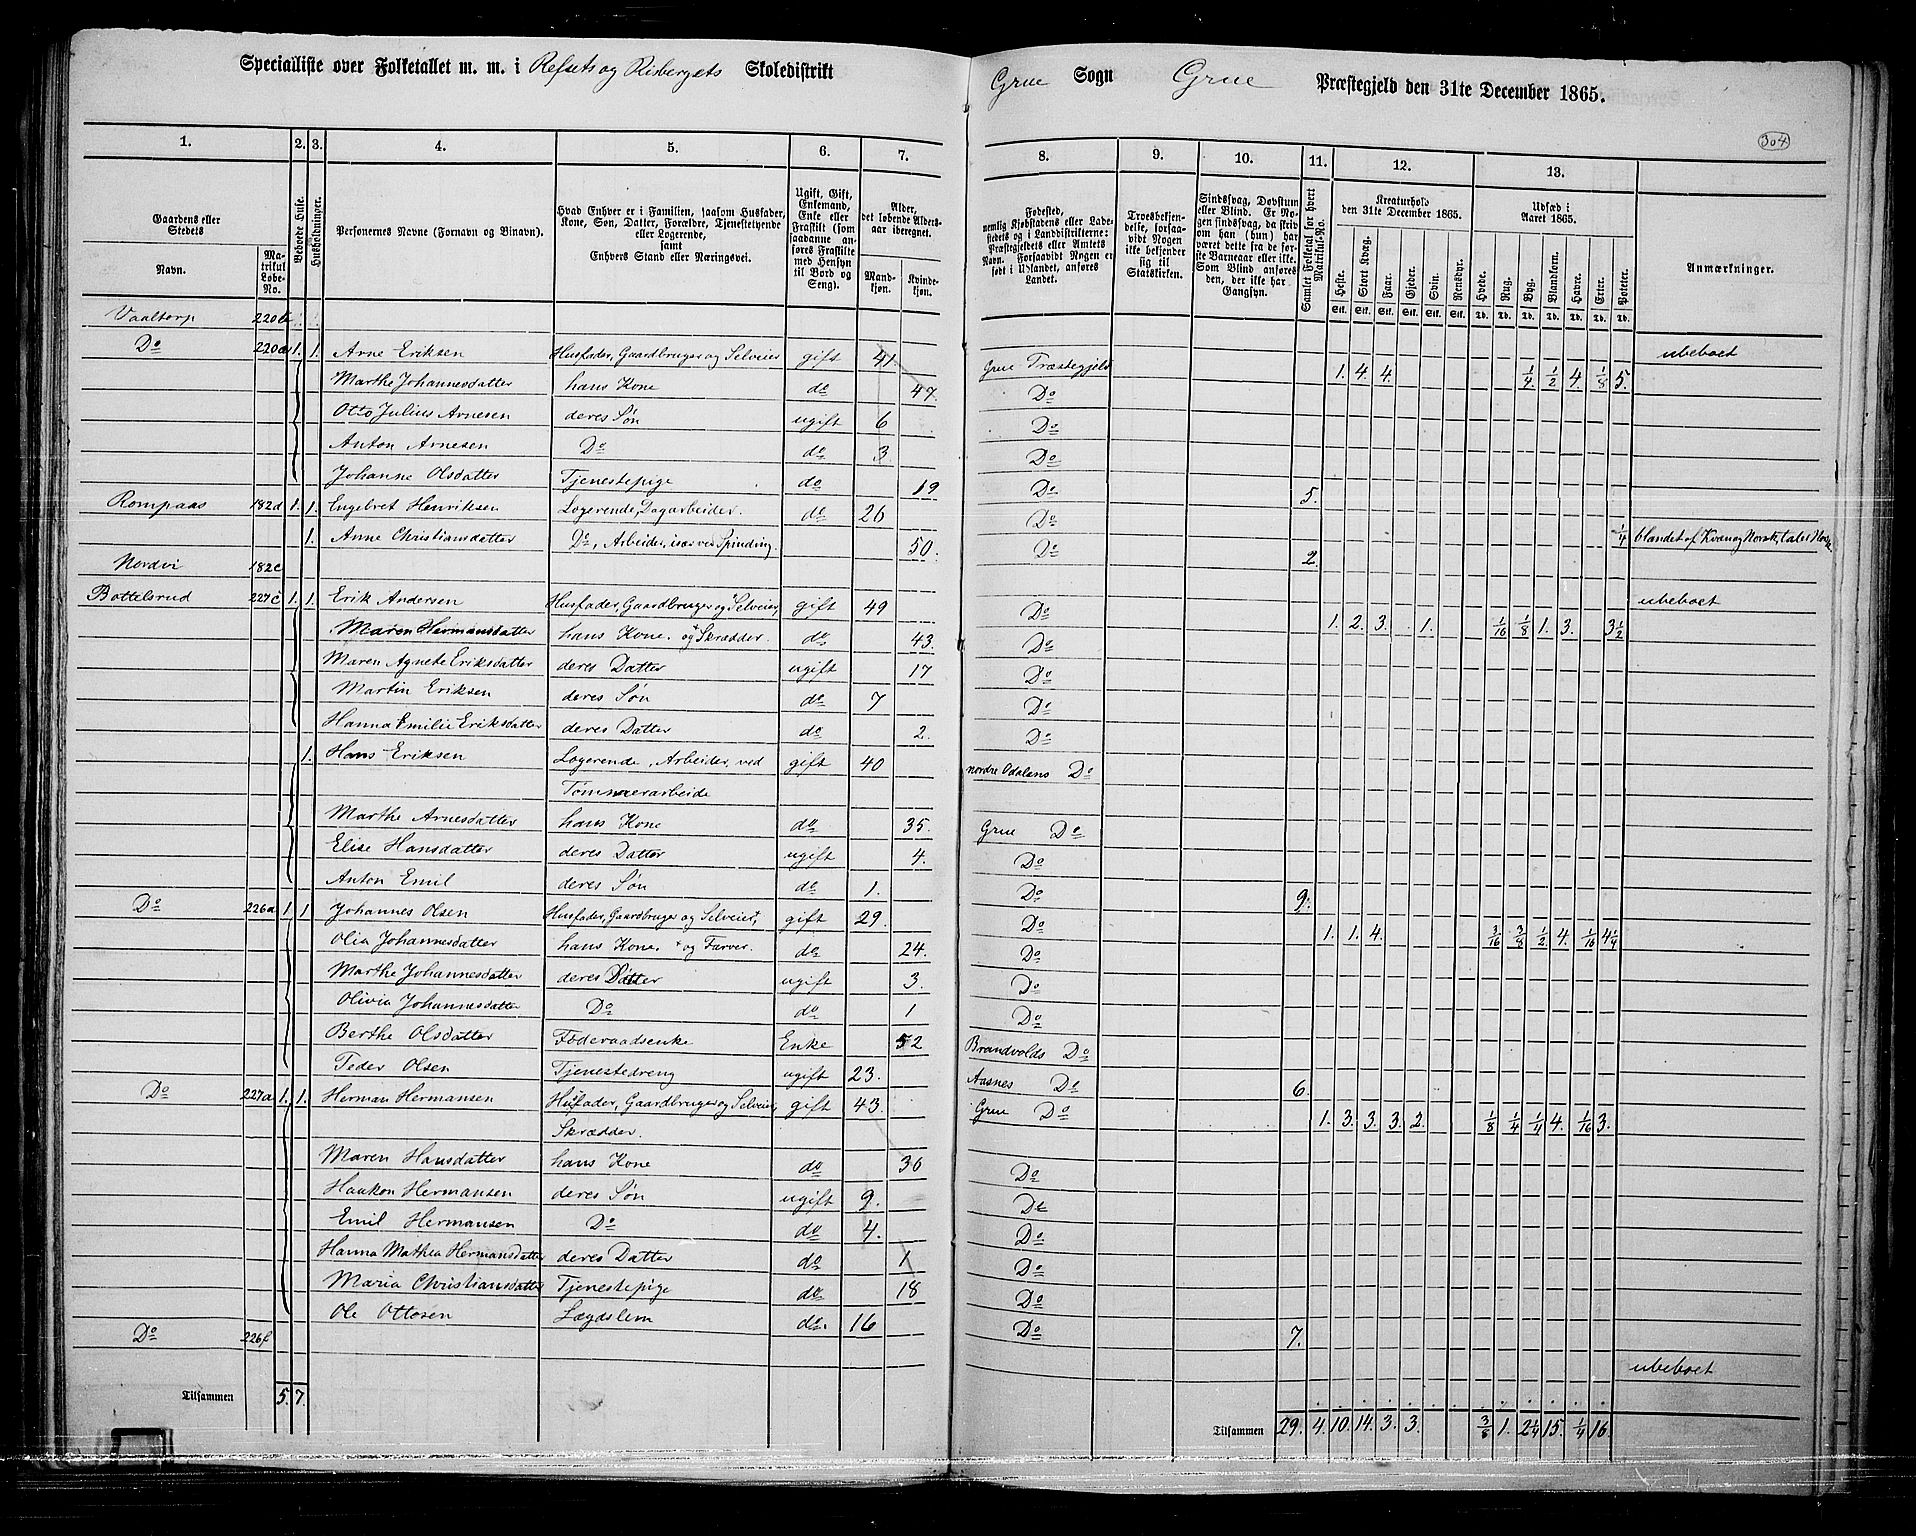 Specialliste over Folketallet m. m. i Refsets og Risbergets Skoledistrikt Grue Sogn Grue Præstegjeld den 31te December 1865.
304
1. 2. 3. 4. 5. 6. 7. 8. 9. 10. 11. 12. 13.
Gaardens eller Stedets
Navn.
Matrikul Løbe-No.
Beboede Huse.
Husholdninger.
Personernes Navne (Fornavn og Binavn).
Hvad Enhver er i Familien, saasom Husfader, Kone, Søn, Datter, Forældre, Tjenestetyende eller Logerende, samt Enhvers Stand eller Næringsvei.
Ugift, Gift, Enkemand, Enke eller Fraskilt (som saadanne anføres Fraskilte med Hensyn til Bord og Seng).
Alder, det løbende Alders-aar iberegnet.
Mand-kjøn.
Kvinde-kjøn.
Fødested, nemlig Kjøbstadens eller Ladestedets og i Landdistrikterne: Præstegjeldets eller Amtets Navn. Forsaavidt Nogen er født i Udlandet, anføres Landet.
Troesbekjendelse, forsaavidt Nogen ikke bekjender sig til Statskirken.
Sindssvag, Døvstum eller Blind. Er Nogen sindssvag, da skriv om han (hun) har været dette fra de første Barneaar eller ikke. Som Blind anføres den, der ikke har Gangsyn.
Samlet Folketal for hvert Matrikul-No.
Kreaturhold den 31te December 1865.
Heste. Stort Kvæg. Faar. Gjeder. Svin. Rensdyr.
Stk. Stk. Stk. Stk. Stk. Stk.
Udsæd i Aaret 1865.
Hvede. Rug. Byg. Blandkorn. Havre. Erter. Poteter.
Td. Td. Td. Td. Td. Td. Td.
Anmærkninger.
Vaaltorp 220b ubeboet
Do 220a 1. 1. Arne Eriksen Husfader, Gaardbruger og Selveier gift 41. Grue Præstegjeld 1. 4. 4. 1/4 1/2 4. 1/8 5.
Marthe Johannesdatter hans Kone do 47. Do
Otto Julius Arnesen deres Søn ugift 6 Do
Anton Arnesen Do do 3 Do
Johanne Olsdatter Tjenestepige do 19 Do 5.
Rompaas 182d 1. 1. Engebret Henriksen Logerende, Dagarbeider. do 26 Do
1. Anne Christiansdatter Do, Arbeider, især ved Spinding. 50. Do 2. 1/4 blandet af
Nordvi 182c ubeboet
Bottelsrud 227c 1. 1. Erik Andersen Husfader, Gaardbruger og Selveier, gift 49 Do 1. 2. 3. 1. 1/16 1/8 1. 3. 3 1/2
Maren Hermansdatter hans Kone. + og Skrædder. do 43. Do
Maren Agnete Eriksdatter deres Datter ugift 17 Do
Martin Eriksen deres Søn do 7 Do
Hanna Emilie Eriksdatter deres Datter do 2. Do
1. Hans Eriksen Logerende, Arbeider, ved gift 40 nordre Odalens Do
Tømmerarbeide
Marthe Arnesdatter hans Kone do 35. Grue Do
Elise Hansdatter deres Datter ugift 4. Do
Anton Emil deres Søn do 1. Do 9.
Do 226a 1. 1 Johannes Olsen Husfader, Gaardbruger og Selveier+ gift 29. Do 1. 1. 4. 3/16 3/8 1/2 4. 1/16 4 1/4
Olia Johannesdatter hans Kone. + og Farver. do 24. Do
Marthe Johannesdatter deres Datter ugift 3. Do
Olivia Johannesdatter Do do 1 Do
Berthe Olsdatter Føderaadsenke Enke 52 Brandvolds Do
Peder Olsen Tjenestedreng ugift 23. Aasnes Do 6.
Do 227a 1. 1. Herman Hermansen Husfader, Gaardbruger og Selveier, gift 43. Grue Do 1. 3. 3. 3. 2. 1/8 1/4 1/4 4. 1/16 3.
Skrædder.
Maren Hansdatter hans Kone do 36 Do
Haakon Hermansen deres Søn ugift 9. Do
Emil Hermansen Do do 4. Do
Hanna Mathea Hermansdatter deres Datter do 1 Do
Maria Christiansdatter Tjenestepige do 18 Do
Ole Ottosen Lægdslem do. 16 Do 7.
Do 226f ubeboet
Tilsammen 5. 7. Tilsammen 29. 4. 10. 14. 3. 3. 3/8 1. 2 1/4 15. 1/4 16.